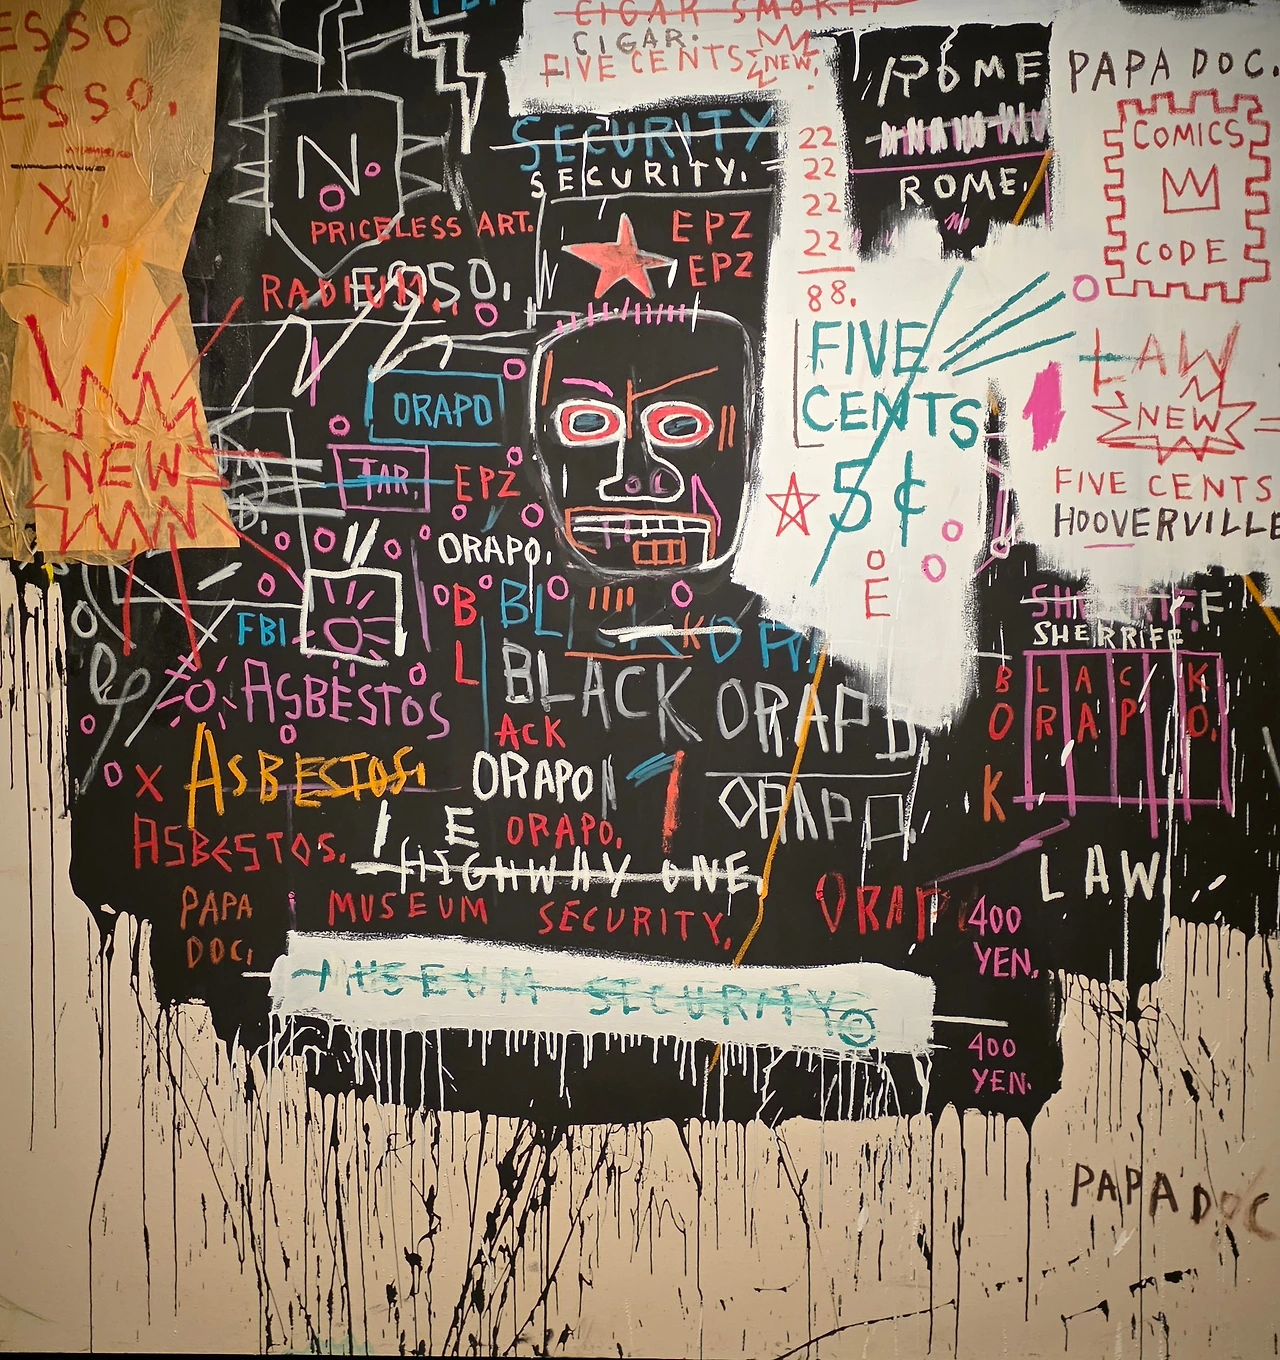 ESSO
ESSO.
X.
NEW
N
PRICELESS ART.
RADIUM.
ESSO.
CIGAR SMOKE.
CIGAR.
FIVE CENTS
NEW.
SECURITY
SECURITY.
EPZ
EPZ
22
22
22
22
88.
ROME
ROME.
PAPA DOC.
COMICS
CODE
FIVE
CENTS
5¢
LAW
NEW
FIVE CENTS
HOOVERVILLE
ORAPO
TAR.
EPZ
ORAPO.
O
E
FBI
B
L
ACK
ASBESTOS
ASBESTOS.
X
ASBESTOS.
BLACK
BLACK ORAPO
ORAPO
ORAPO
E
ORAPO.
HIGHWAY ONE.
SHERRIFF
SHERRIFF
BLACK
ORAPO.
K
LAW
PAPA
DOC.
MUSEUM SECURITY.
ORAP
400
YEN.
MUSEUM SECURITY ©
400
YEN.
PAPA DOC